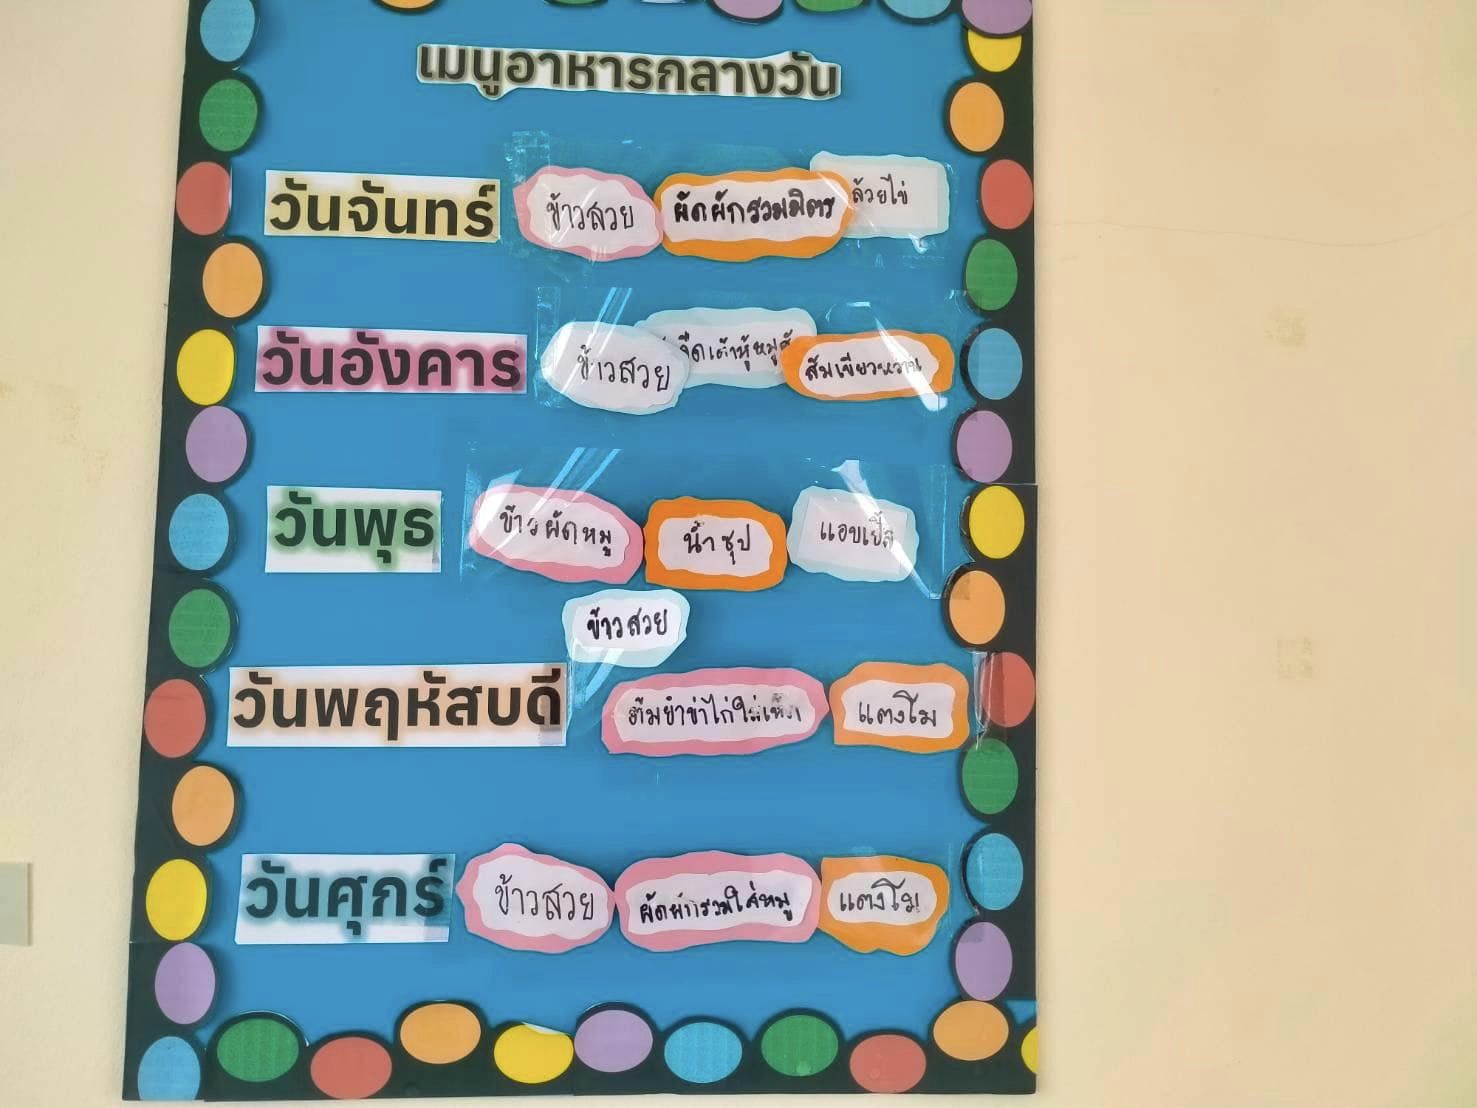 เมนูอาหารกลางวัน
วันจันทร์ ข้าวสวย ผัดผักรวมมิตร ล้วยไข่
วันอังคาร ข้าวสวย จืดเต้าหู้หมูสั ส้มเขียวหวาน
วันพุธ ข้าวผัดหมู น้ำซุป แอบเปิ้ล
ข้าวสวย
วันพฤหัสบดี ต้มยำข่าไก่ใส่เห็ด แตงโม
วันศุกร์ ข้าวสวย ผัดผักรวมใส่หมู แตงโม